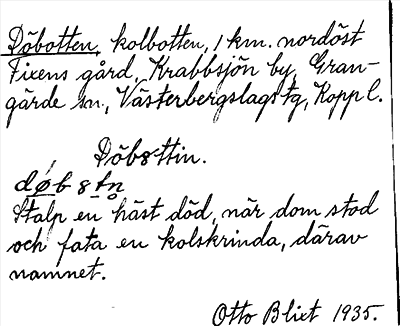 Döbotten, kolbotten, 1 km. nordöst
Fixens gård, Krabbsjön by, Gran-
gärde sn, Västerbergslags tg, Kopp l.
Döbåttin.
døbåtn
Stalp en häst död, när dom stod
och fata en kolskrinda, därav
namnet.
Otto Blixt 1935.